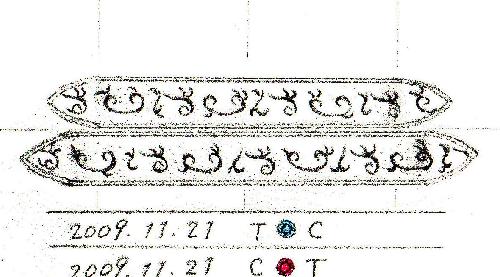 2009.11.21 T C
2009.11.21 C T